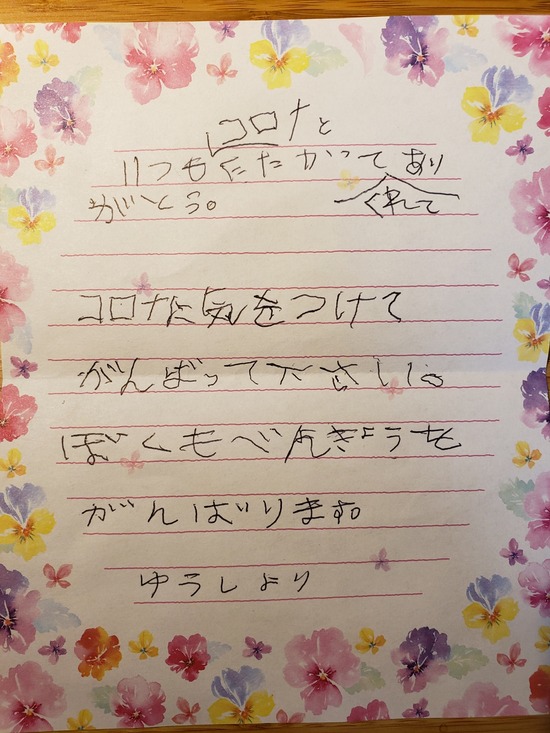 コロナと
いつもたたかってあり
くれて
がとう。
コロナに気をつけて
がんばって下さい。
ぼくもべんきょうを
がんばります。
ゆうしより